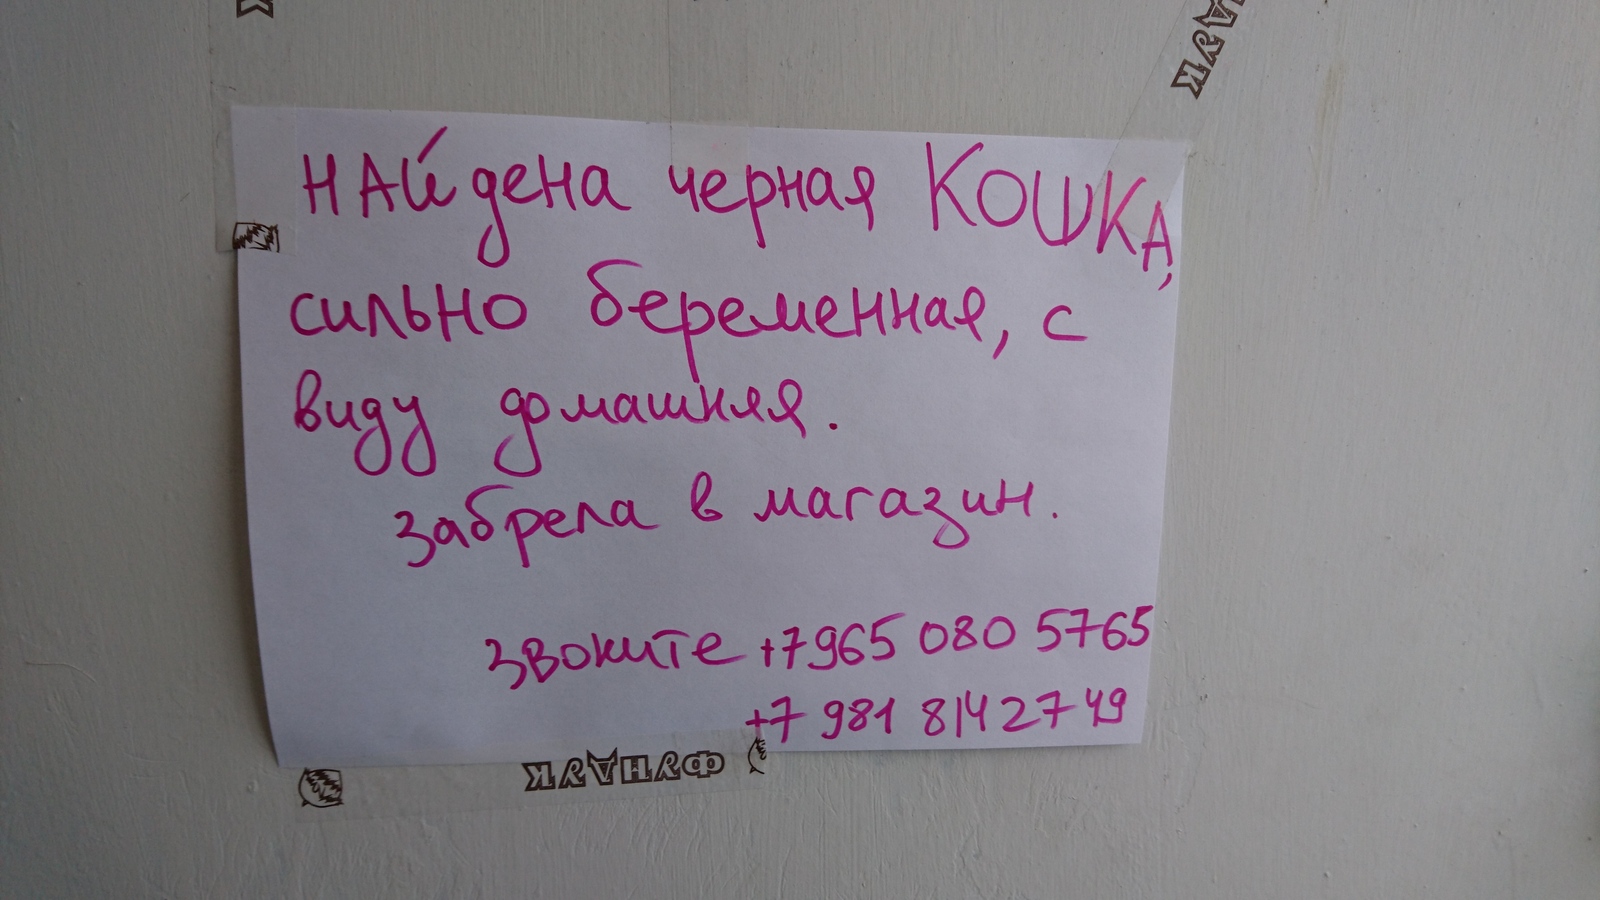 НАЙдена черная КОШКА,
сильно беременная, с
виду домашняя.
забрела в магазин.
звоните +7965 080 5765
+7 981 814 27 49
ФУНДУК